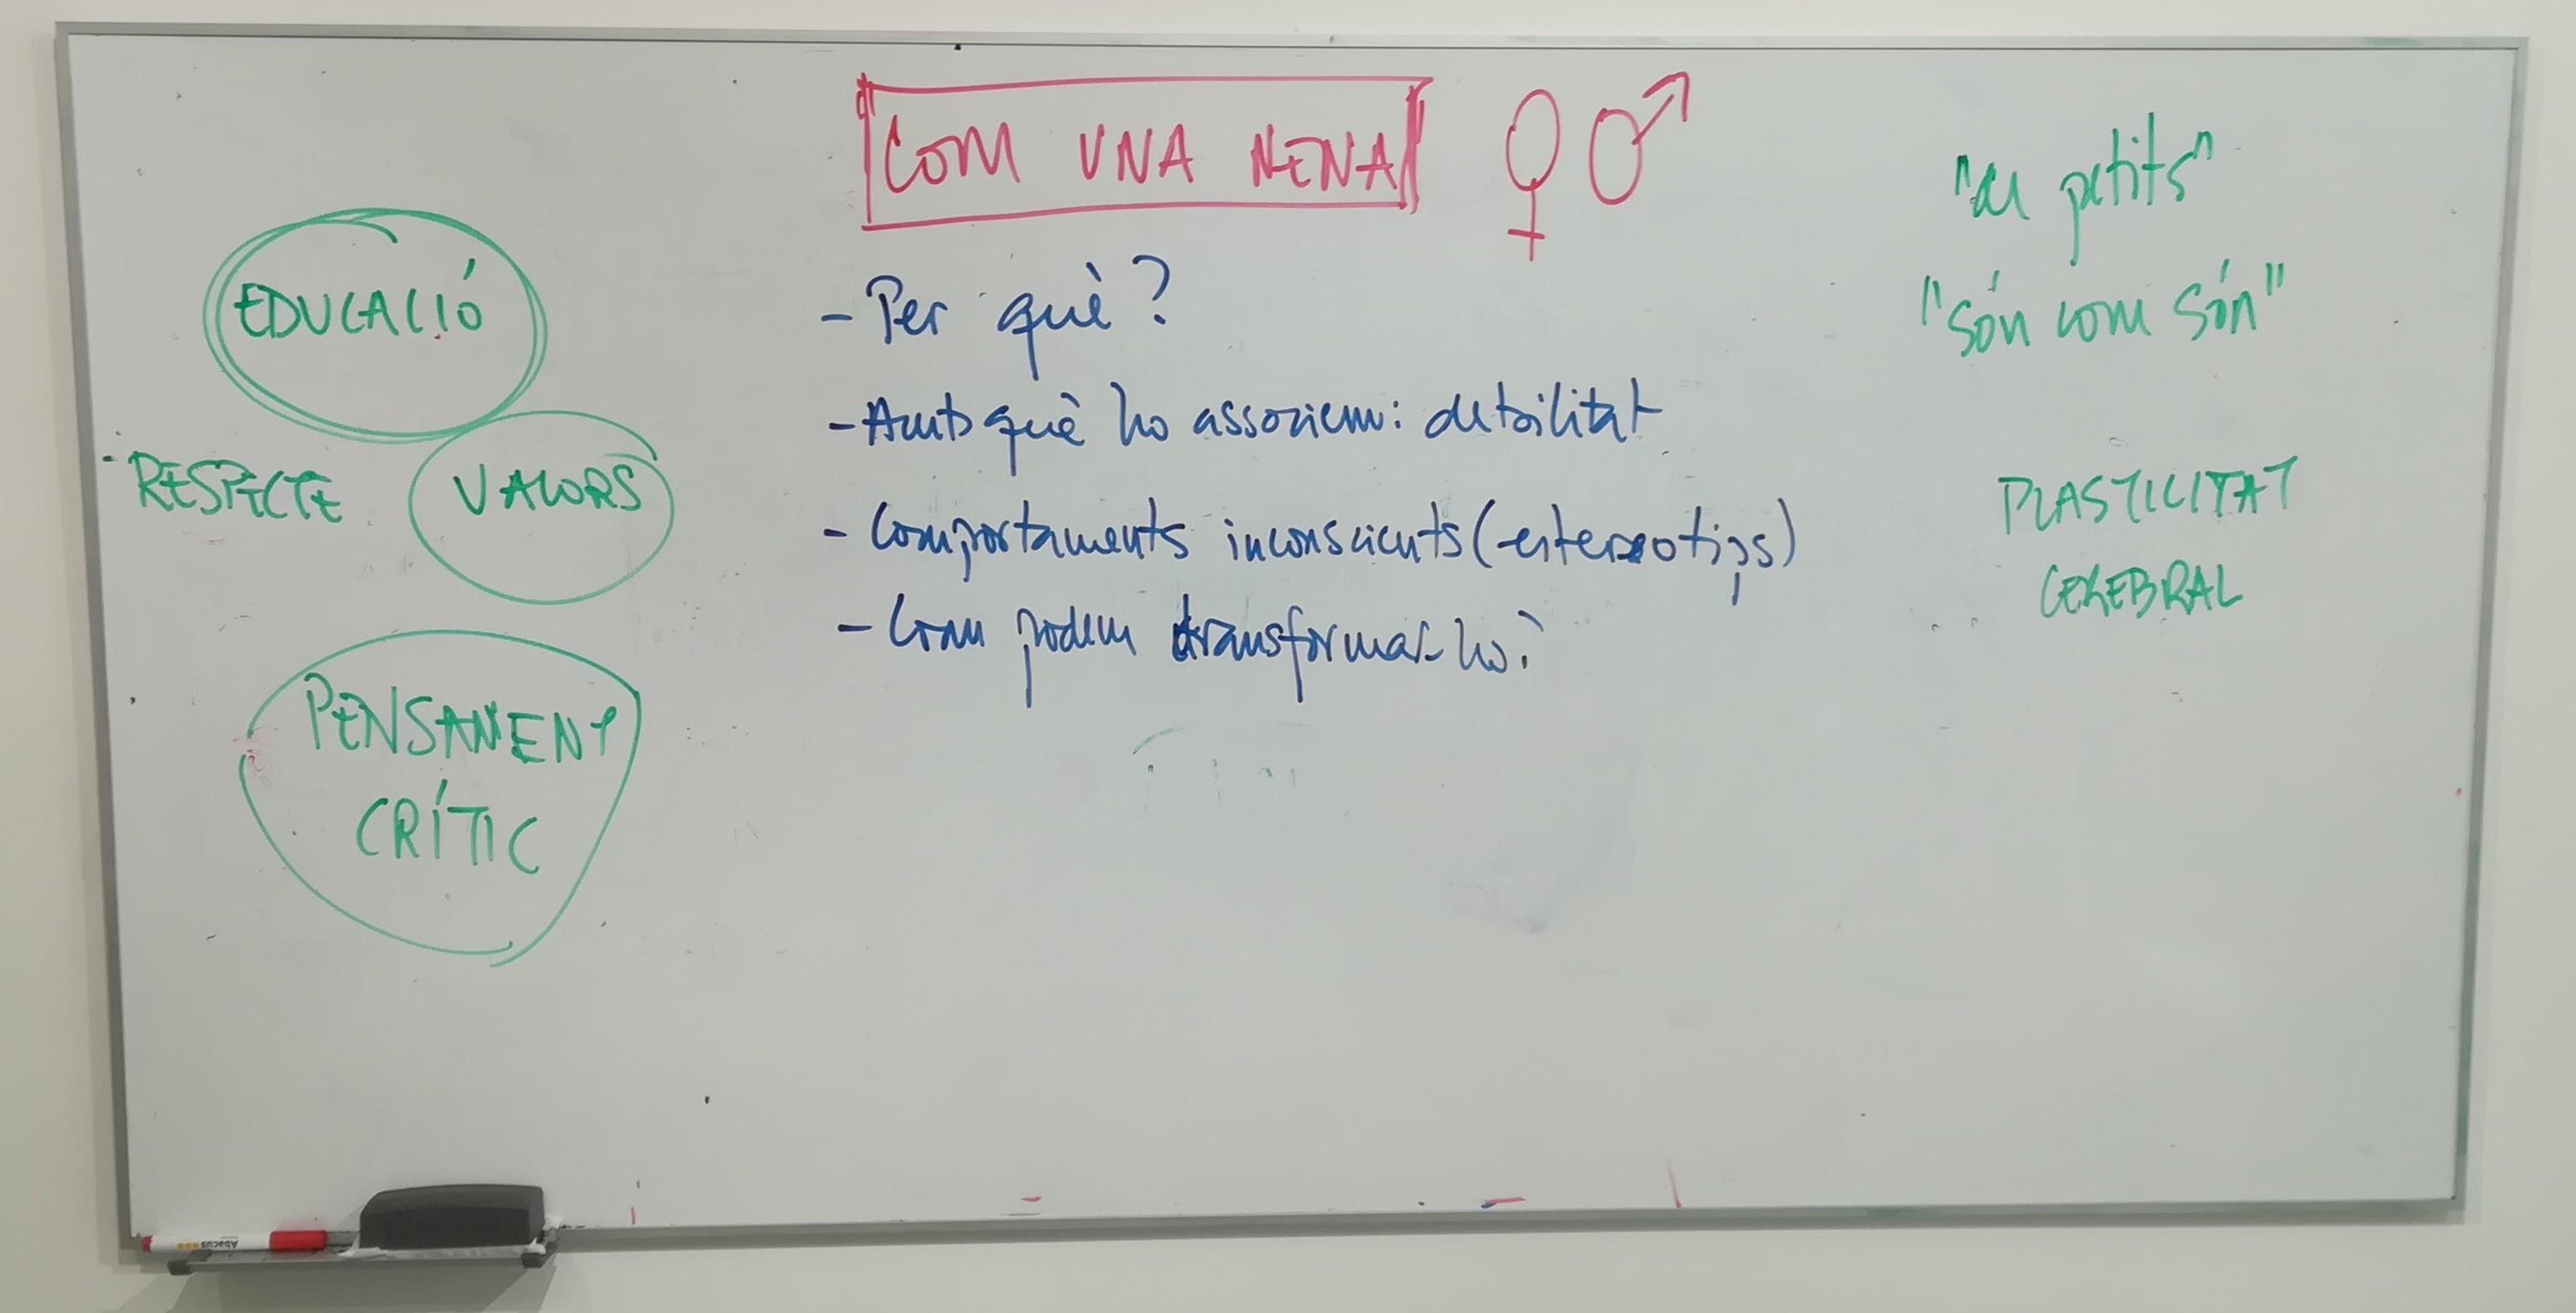 COM UNA NENA ♀ ♂
EDUCACIÓ
RESPECTE
VALORS
PENSAMENT
CRÍTIC
- Per què?
- Amb què ho associem: debilitat
- Comportaments inconscients (estereotips)
- Com podem transformar-ho?
"de petits"
"són com són"
PLASTICITAT
CEREBRAL
Abacus